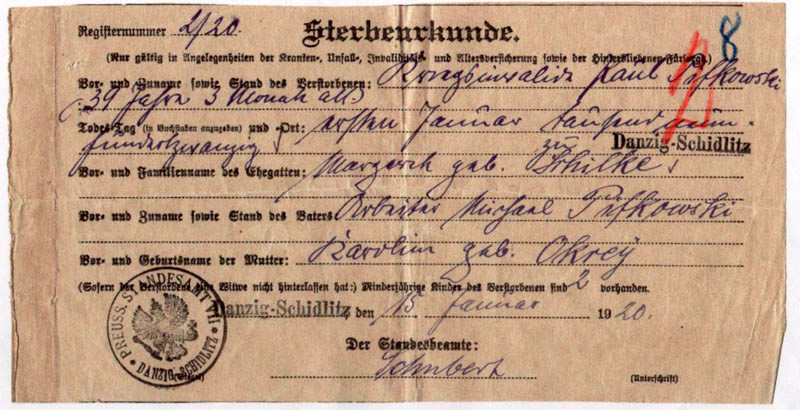 8
Registernummer 2/20. Sterbeurkunde.
(Nur gültig in Angelegenheiten der Kranken-, Unfall-, Invaliditäts- und Altersversicherung sowie der Hinterbliebenen-Fürsorge.)
Vor- und Zuname sowie Stand des Verstorbenen: Kriegsinvalide Paul
39 Jahre 3 Monat alt
Todes-Tag (in Buchstaben anzugeben) und -Ort: ersten Januar tausend neun-
hundertzwanzig zu Danzig-Schidlitz
Vor- und Familienname des Ehegatten: Margareth geb. Schilke.
Vor- und Zuname sowie Stand des Vaters Arbeiter Michael
Vor- und Geburtsname der Mutter: Karoline geb. Okrey
(Sofern der Verstorbene eine Witwe nicht hinterlassen hat:) Minderjährige Kinder des Verstorbenen sind 2 vorhanden.
Danzig-Schidlitz, den 15 Januar 1920.
Der Standesbeamte:
Schubert
(Unterschrift)
PREUSS. STANDESAMT VII
DANZIG-SCHIDLITZ